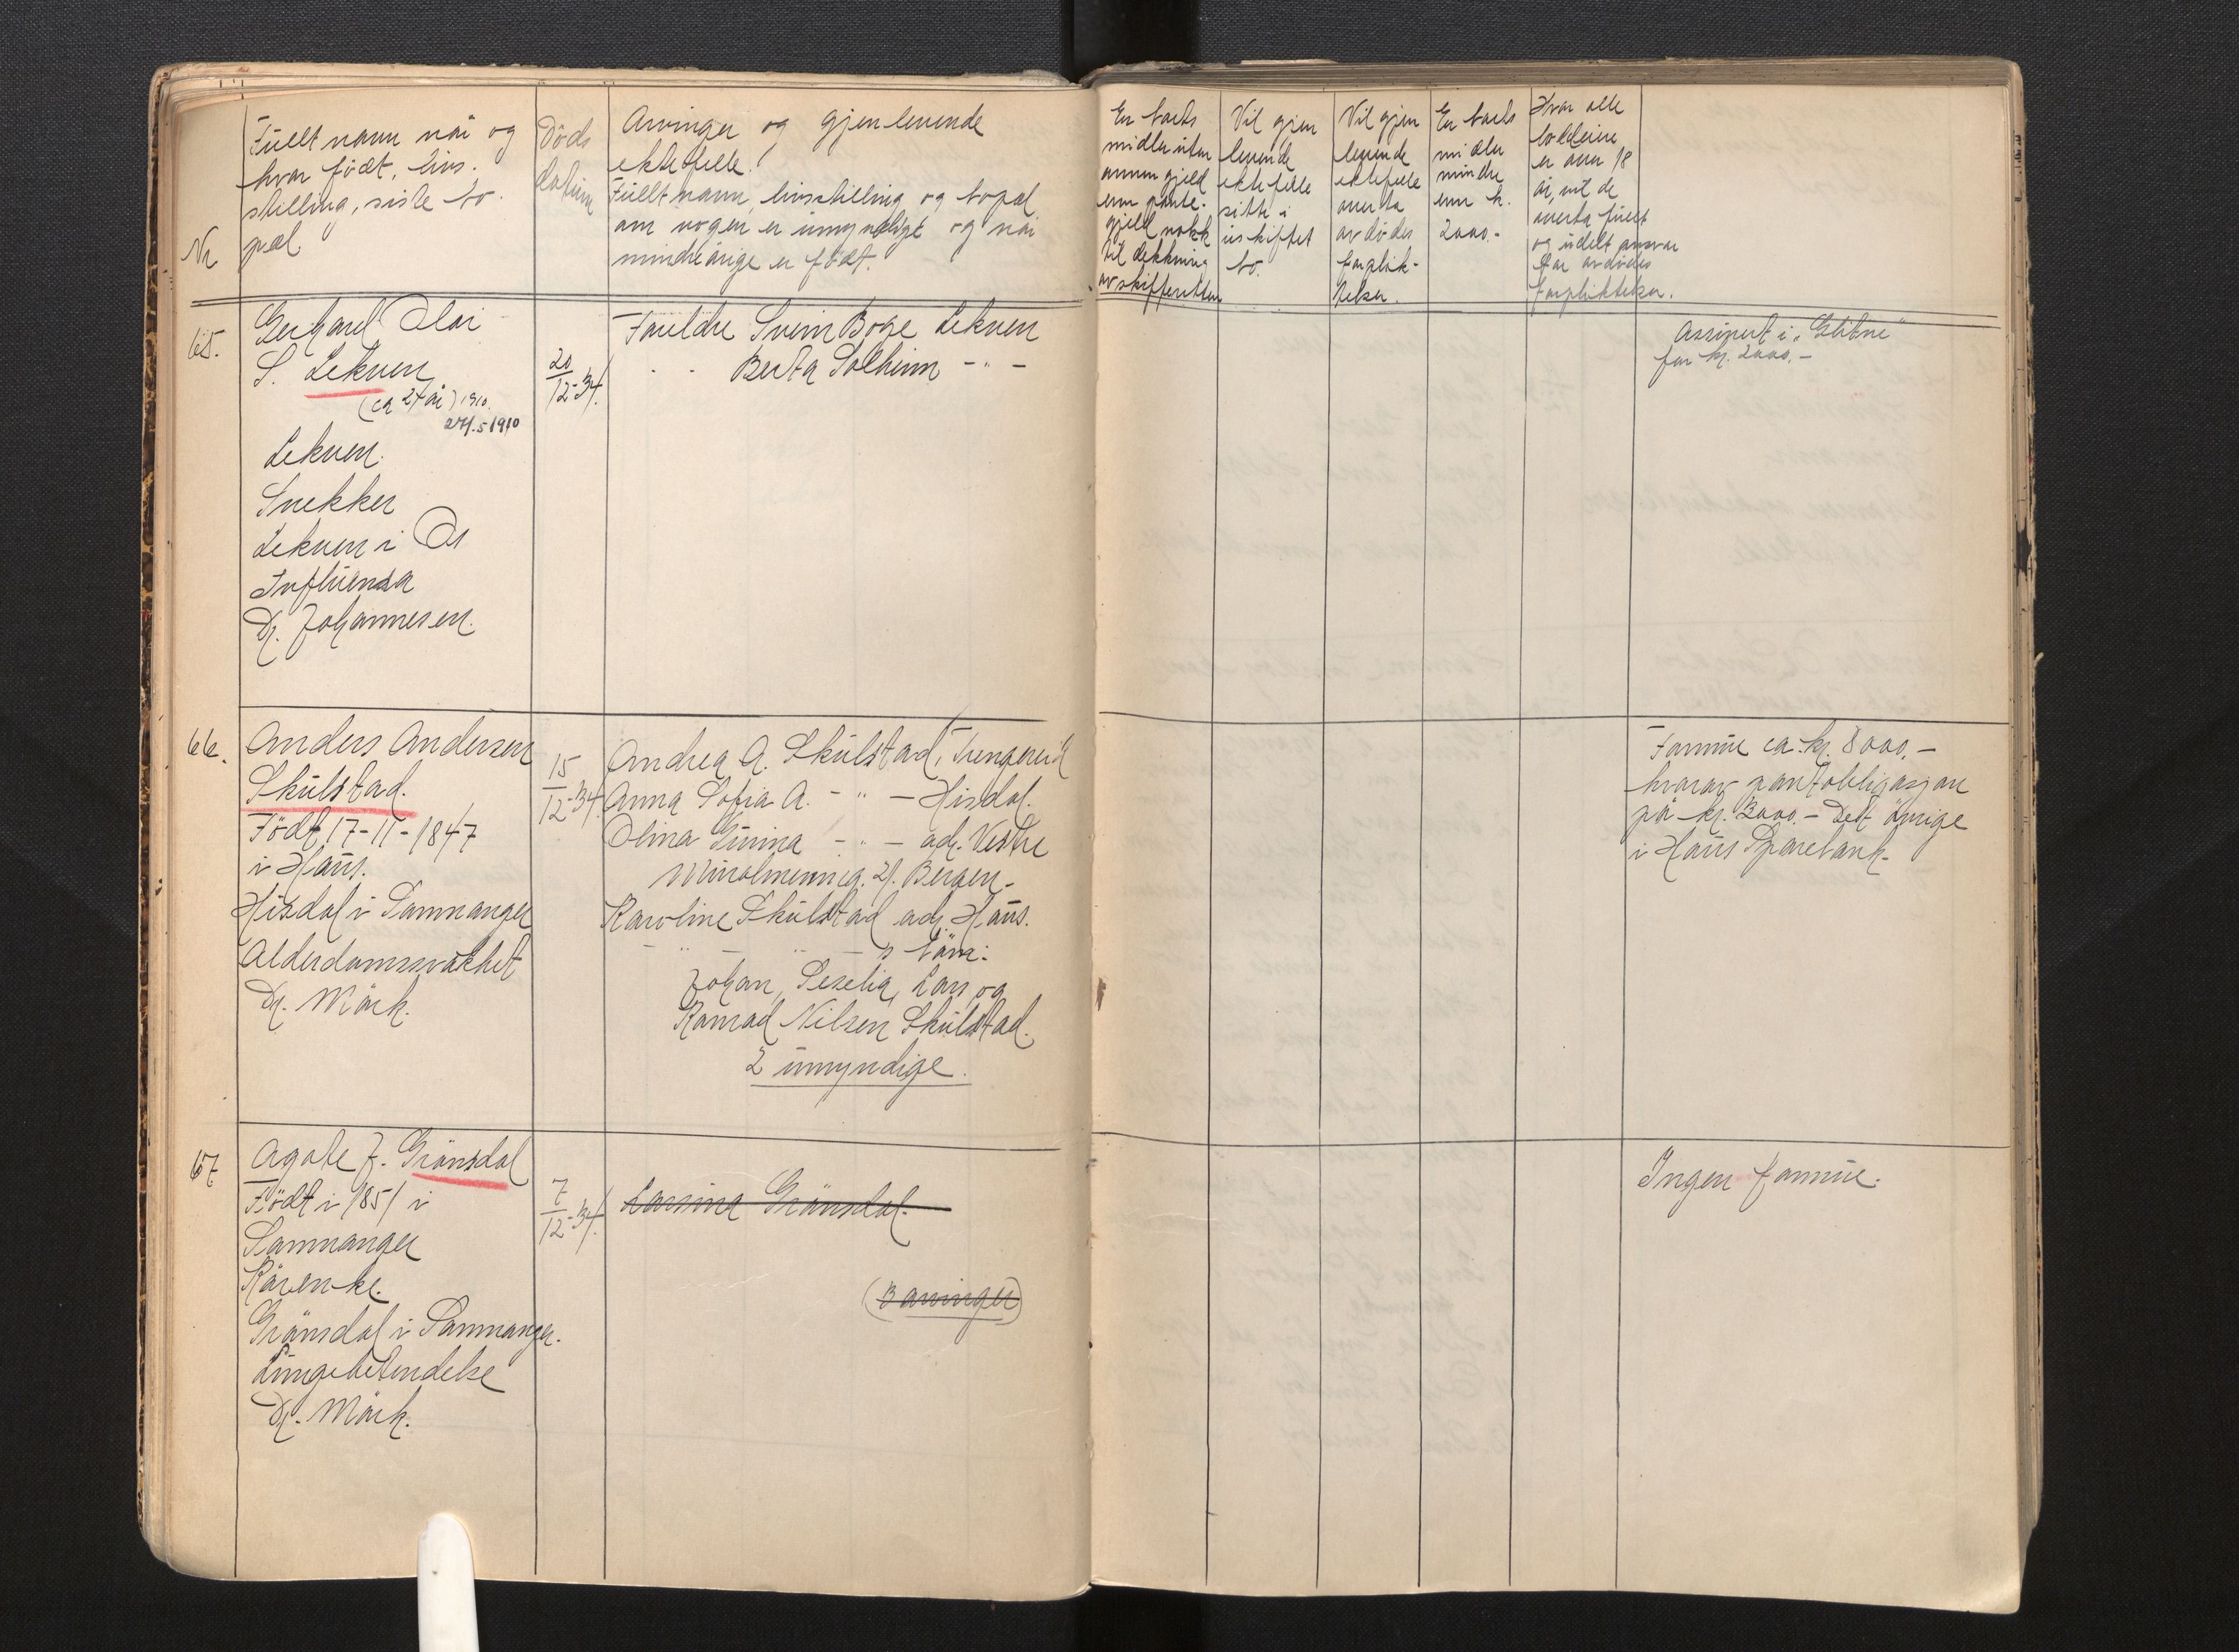 Nr
Fullt navn når og
hvor född, livs-
stilling, siste bo-
pæl
Döds
datum
Arvinger og gjenlevende
ektefelle.
Fullt navn, livsstilling og bopæl
om nogen er umyndige og når
mindreårige er född.
Er boets
midler uten
annen gjeld
enn pante-
gjeld nokk
til dekkning
av skifteretten
Vil gjen
levende
ektefelle
sitte i
uskiftet
bo.
Vil gjen
levende
ektefelle
overta
avdödes
forplik-
telser.
Er boets
midler
mindre
enn kr.
2000.-
Hvor alle
loddeiere
er over 18
år, vil de
overta fullt
og udelt ansvar
for avdödes
forpliktelser.
65.
Gerhard Olai
S. Lekven
(ca 24 år) 1910.
24/.5 1910
Lekven.
Snekker
Lekven i Os
Influensa
Dr. Johannesen.
20/12-34.
Foreldre Svein Boge Lekven
- - Berta Solheim - " -
Assurert i "Glitne"
for kr. 2000,-
66.
Anders Andersen
Skulstad.
Födt 17-11-1847
i Haus.
Hisdal i Samnanger
Alderdomssvakhet
Dr. Mörk.
15/12-34.
Andrea A. Skulstad, Trengereid
Anna Sofia A. - " - Hisdal.
Olina Gurina - " - adr. Vestre
Muralmenning. 21. Bergen-
Karoline Skulstad adr. Haus.
- " - " - s barn:
Johan, Seselia, Lars og
Konrad Nilsen Skulstad.
2 umyndige.
Formue ca. kr. 8000,-
hvorav pantobligasjon
på kr. 3000.- Det övrige
i Haus Sparebank-
67
Agate J. Grönsdal
Födt i 1851 i
Samnanger
Kårenke.
Grönsdal i Samnanger.
Lungebetendelse
Dr. Mörk.
7/12-34.
Larsina Grönsdal.
(3 arvinger)
Ingen formue.